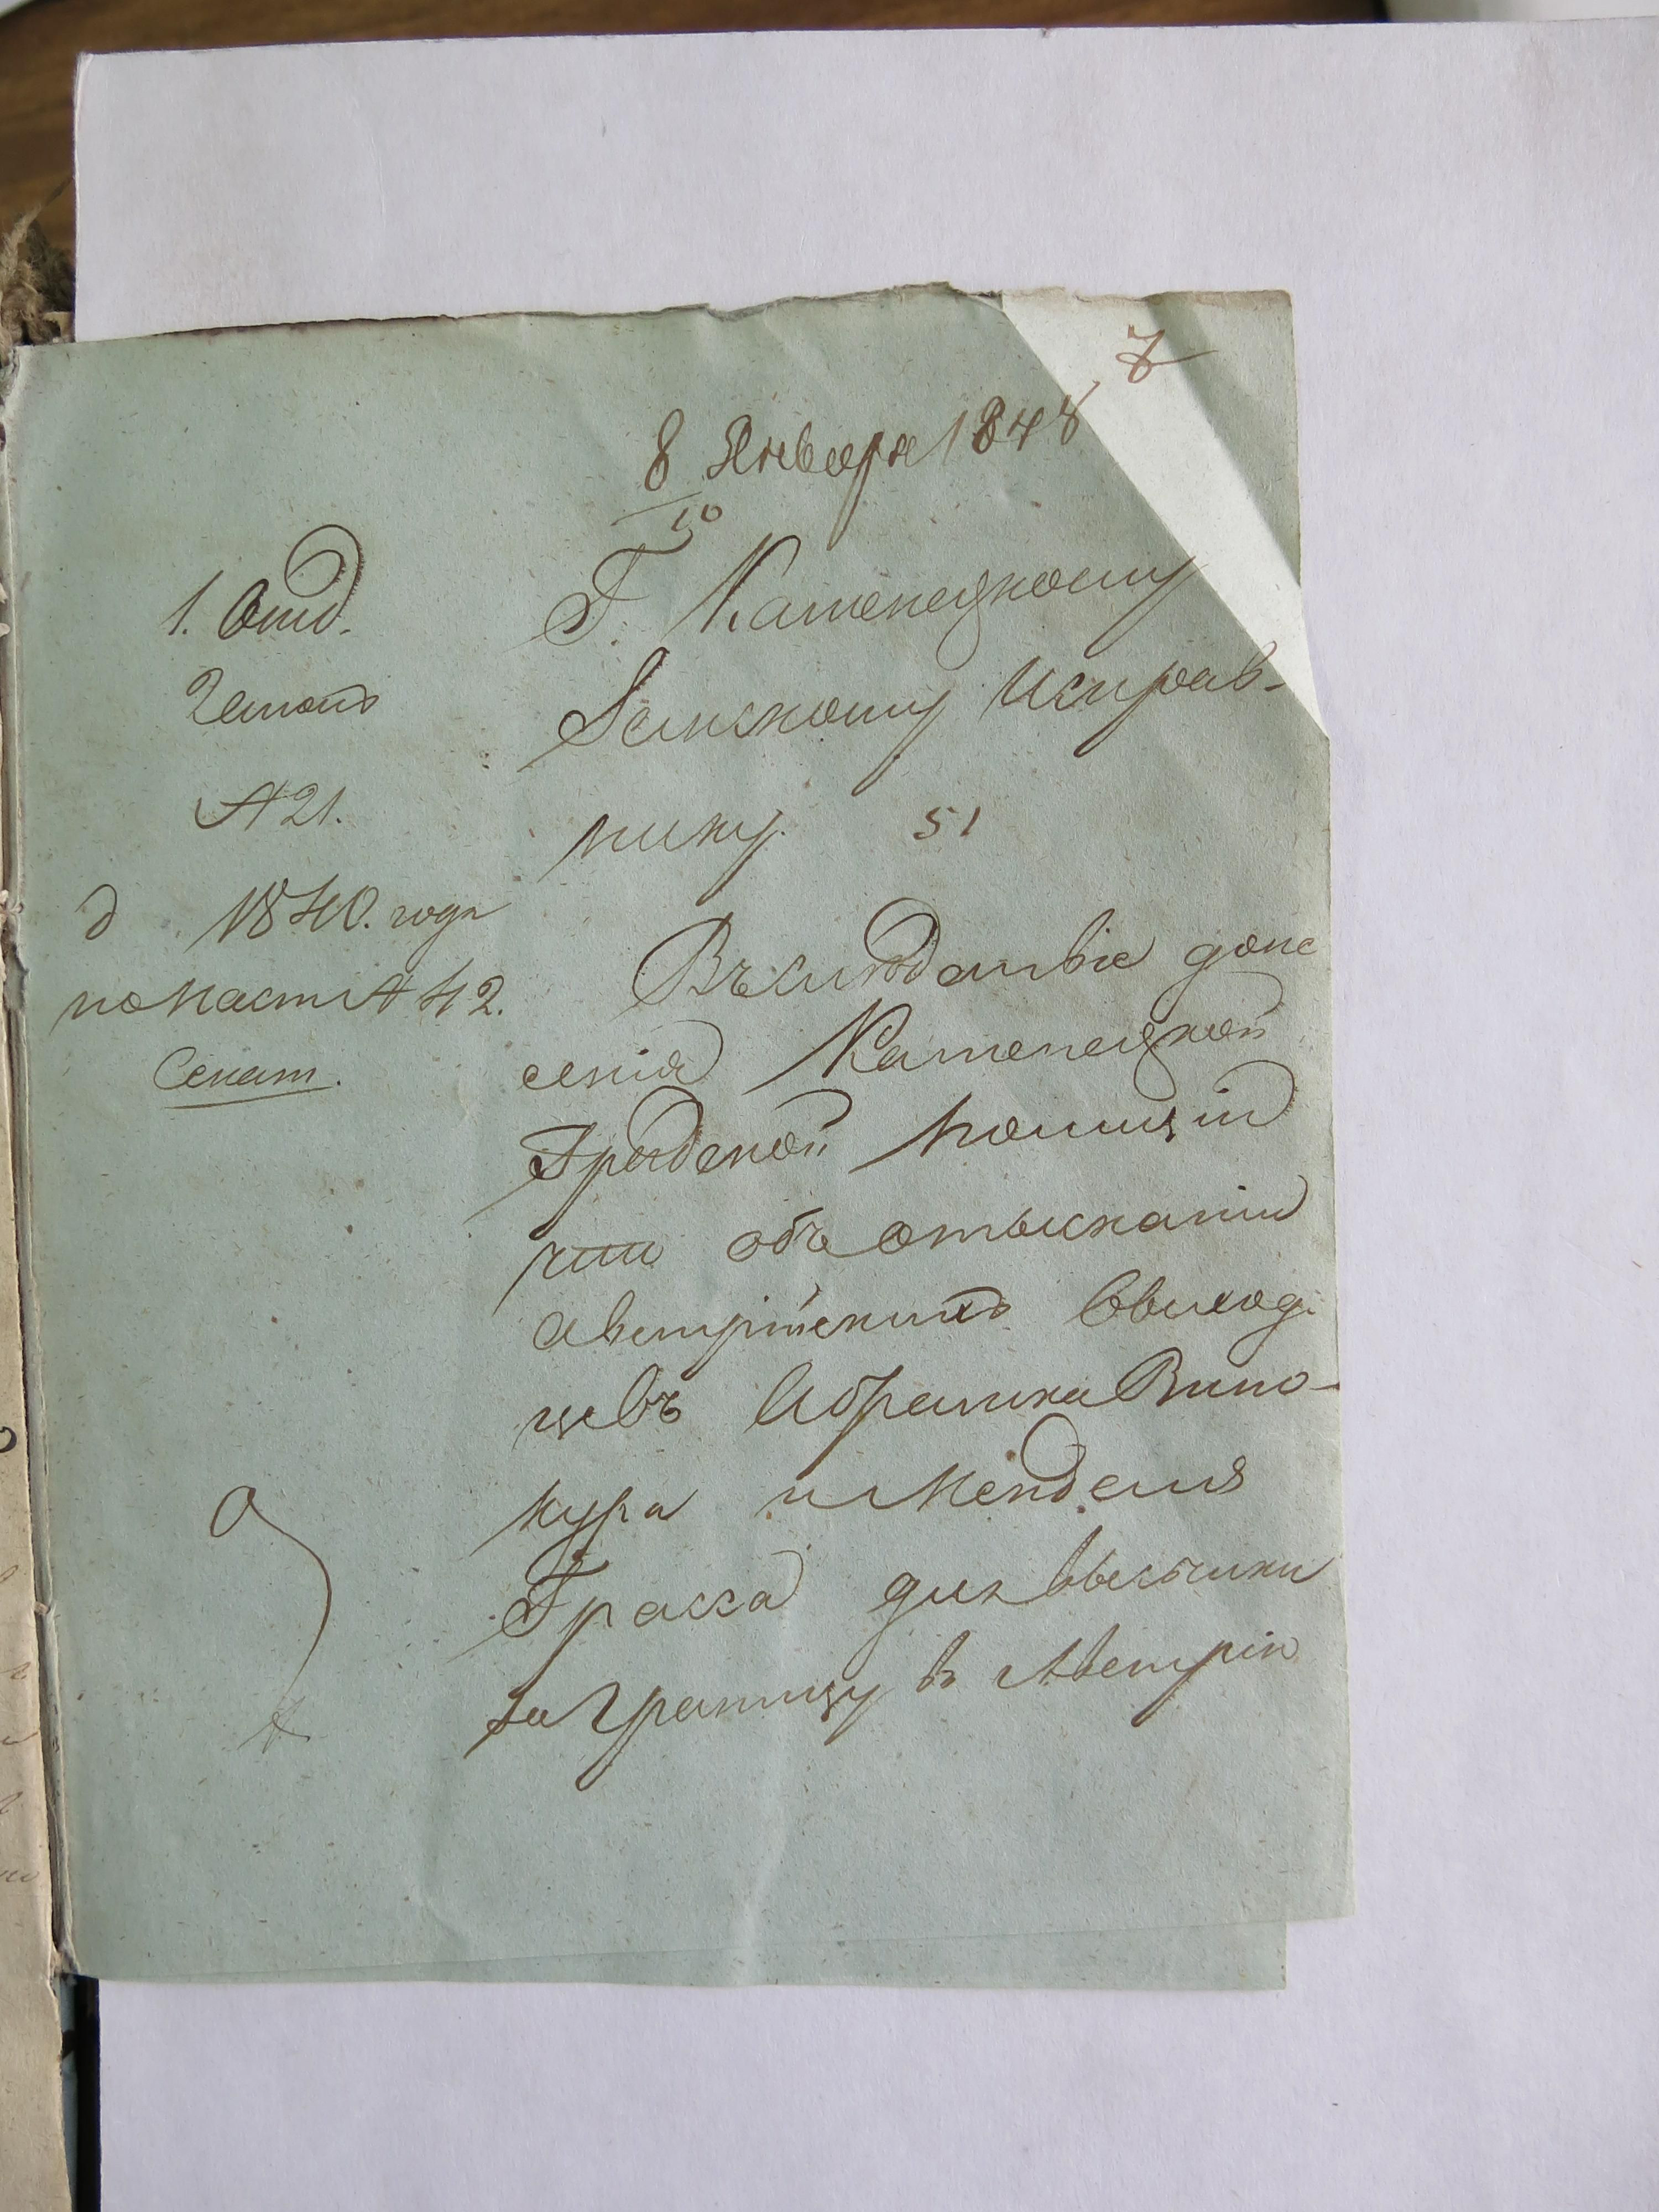 7
8 Января 1848
10
1. Отд.
2 столъ
№ 21.
д 1840. года
по наст № 42.
Секат.
Г. Каменецкому
Земскому Исправ-
нику. 51
Въ слѣдствіе доне
сенія Каменецкой
Градской Полиціи
объ отысканіи
Австрійскихъ выход
цевъ Абрамка Вино-
кура и Менделя
Грасса для высылки
за границу в Австрію